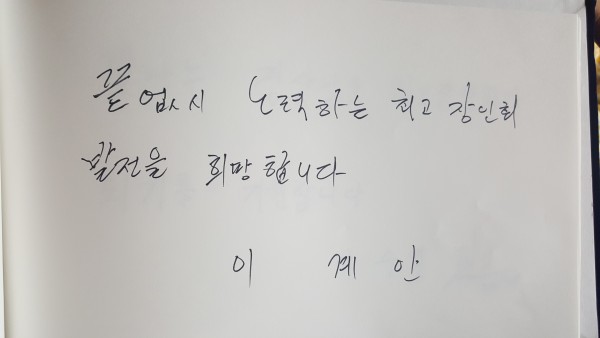 끝 업시 노력하는 최고 장인회
발전을 희망합니다
이 계 안